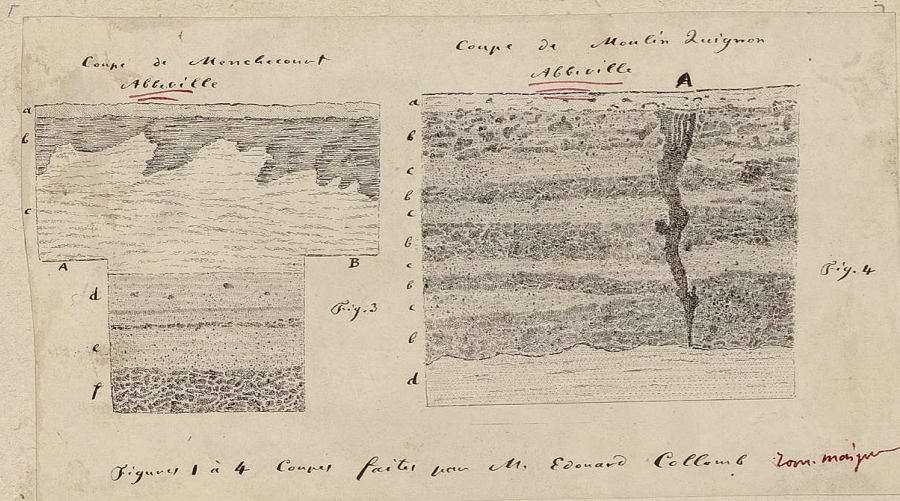 Coupe de Menchecourt
Abbeville
a
b
c
A
B
d
e
f
Fig. 3
Coupe de Moulin Quignon
Abbeville
A
a
b
c
b
c
b
c
b
c
b
d
Fig. 4
Figures 1 à 4 Coupes faites par M. Edouard Collomb